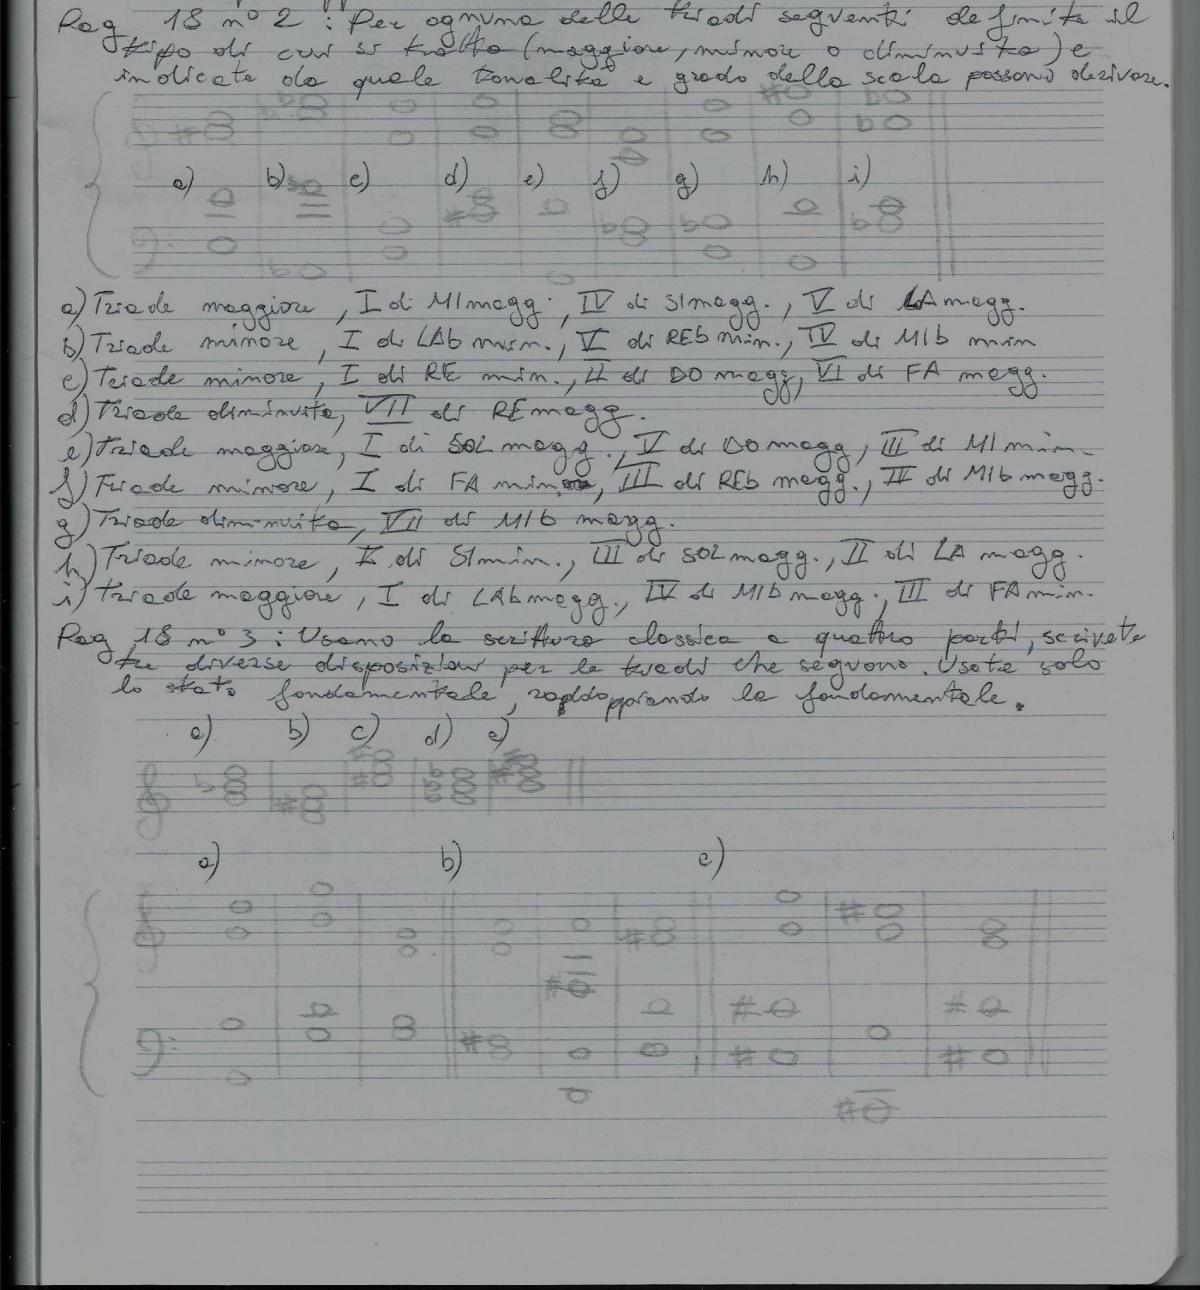 Pag 18 n° 2 : Per ognuna delle triadi seguenti definite il
tipo di cui si tratta (maggiore, minore o diminuita) e
indicate da quale tonalità e grado della scala possono derivare.
a) b) c) d) e) f) g) h) i)
a) Triade maggiore, I di MI magg., IV di SI magg., V di LA magg.
b) Triade minore, I di LAb min., V di REb min., IV di MIb min
c) Triade minore, I di RE min., II di DO magg, VI di FA magg.
d) Triade diminuita, VII di RE magg.
e) Triade maggiore, I di SOL magg., V di DO magg, III di MI min.
f) Triade minore, I di FA minore, III di REb magg., II di MIb magg.
g) Triade diminuita, VII di MIb magg.
h) Triade minore, I di SI min., III di SOL magg., II di LA magg.
i) Triade maggiore, I di LAb magg., IV di MIb magg., III di FA min.
Pag 18 n° 3 : Usano la scrittura classica a quattro parti, scrivete
tre diverse disposizioni per le triadi che seguono. Usate solo
lo stato fondamentale, raddoppiando la fondamentale.
a) b) c) d) e)
a) b) c)